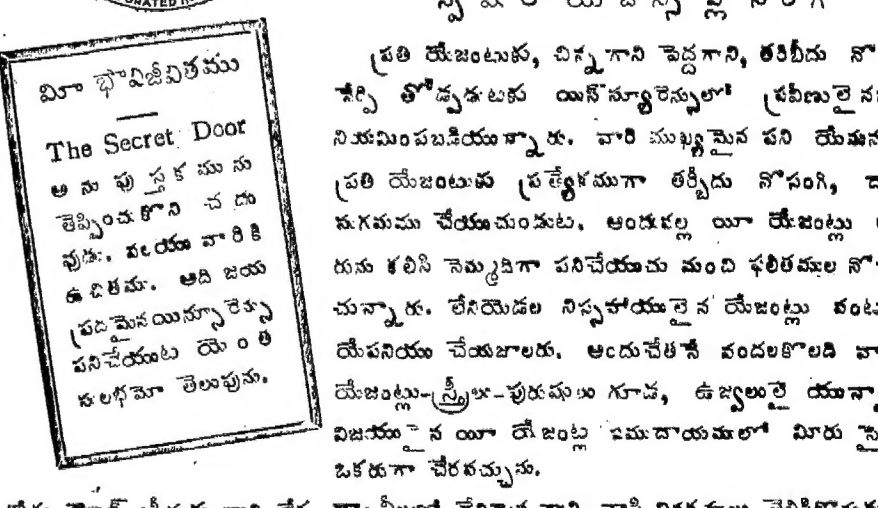 మీ భావిజీవితము
The Secret Door
అను పుస్తకమును
తెప్పించుకొని చదు
వుడు. వలయు వారికి
ఉచితము. అది జయ
ప్రదమైన యిన్సూరెన్సు
పనిచేయుట యెంత
సులభమో తెలుపును.
ప్రతి యేజంటుకు, చిన్నగాని పెద్దగాని, తరిబీదు
నేర్పి తోడ్పడుటకు యిన్‌స్యూరెన్సులో ప్రవీణులైన
నియమింపబడియున్నారు. వారి ముఖ్యమైన పని
ప్రతి యేజంటుకు ప్రత్యేకముగా తర్బీదు నొసంగి,
సుగమము చేయుచుండుట. అందువల్ల యీ యేజంట్లు
రును కలిసి నెమ్మదిగా పనిచేయుచు మంచి ఫలితముల
చున్నారు. లేనియెడల నిస్సహాయులైన యేజంట్లు
యేపనియు చేయజాలరు. అందుచేతనే వందలకొలది
యేజంట్లు-స్త్రీలు-పురుషులు గూడ, ఉజ్వలులై
విజయులైన యీ యేజంట్ల సముదాయములో మీరు
ఒకరుగా చేరవచ్చును.